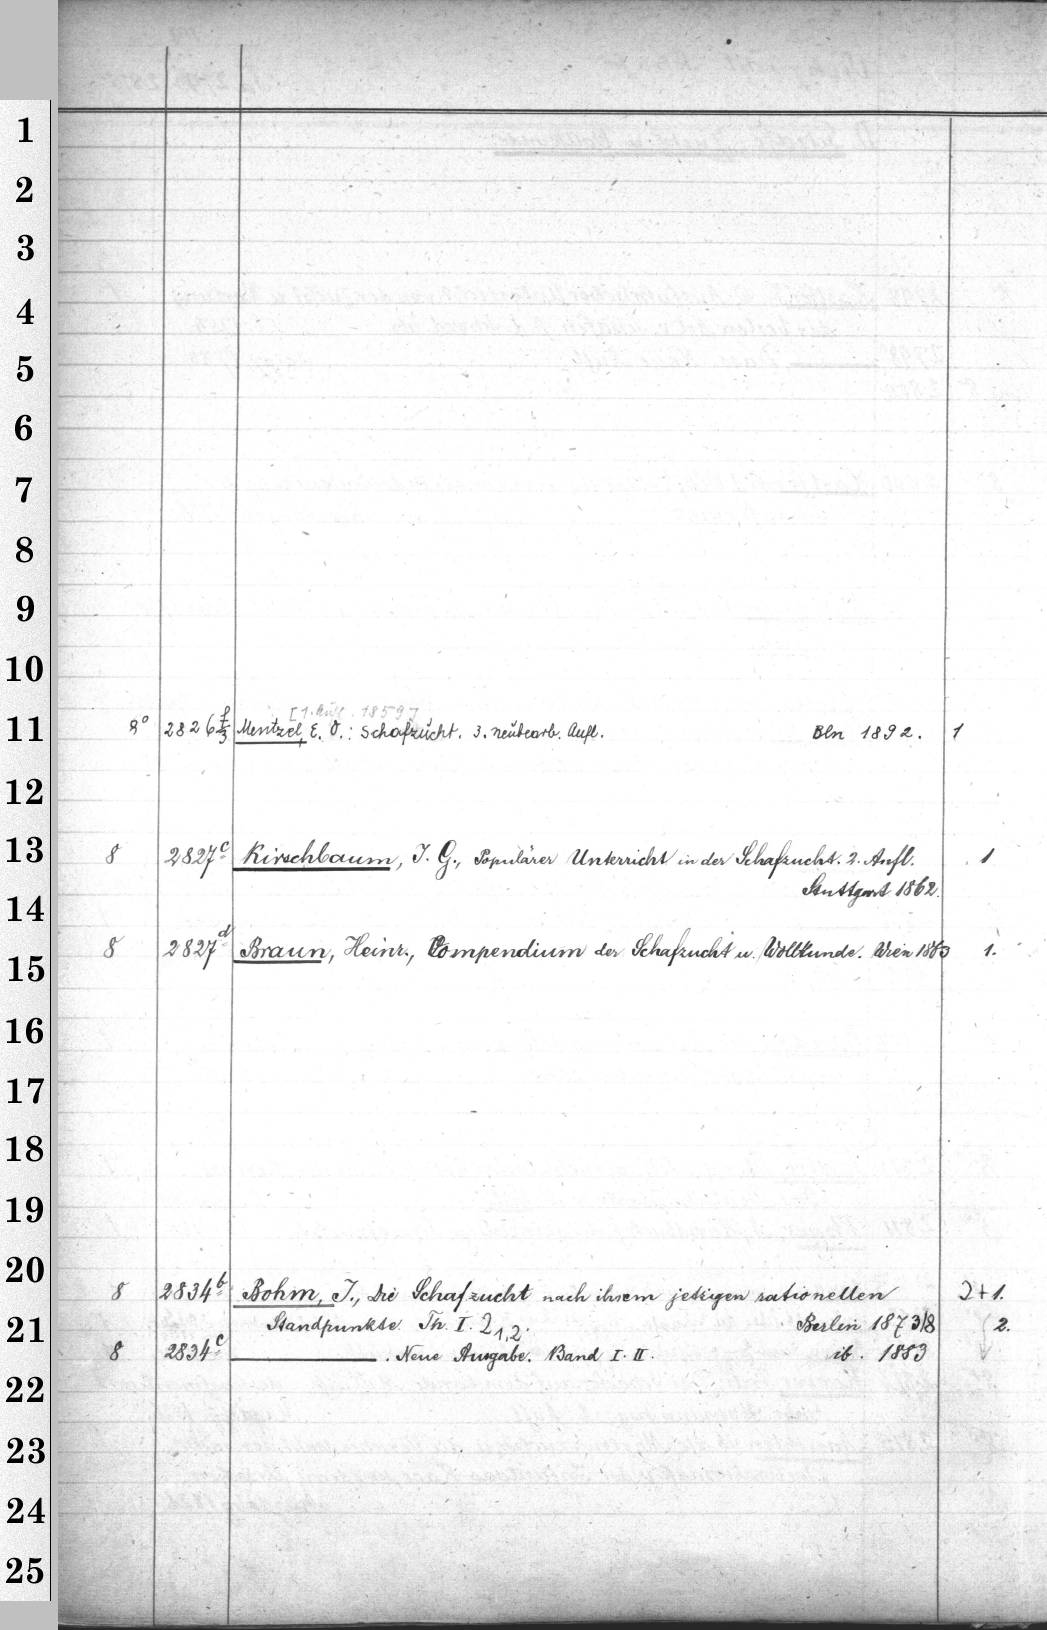 1
2
3
4
5
6
7
8
9
10
[1. Aufl. 1859]
11 8° 2826 f/3 Mentzel, E. O.: Schafzücht. 3. neübearb. Aufl. Bln 1892. 1
12
13 8 2827c Kirschbaum, J. G., Populärer Unterricht in der Schafzucht. 2. Aufl. 1
14 Stuttgart 1862.
15 8 2827d Braun, Heinr., Compendium der Schafzucht u. Wollkunde. Wien 1863 1.
16
17
18
19
20 8 2834b Bohm, J., Die Schafzucht nach ihrem jetzigen rationellen 2+1.
21 Standpunkte. Th. I. 2 1,2. Berlin 1873/8 2.
8 2834c ———. Neue Ausgabe. Band I. II. ib. 1883
22
23
24
25